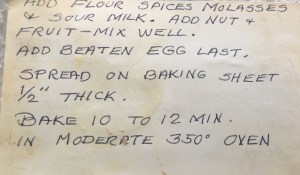 ADD FLOUR SPICES MOLASSES
& SOUR MILK. ADD NUT &
FRUIT - MIX WELL.
ADD BEATEN EGG LAST.
SPREAD ON BAKING SHEET
1/2" THICK.
BAKE 10 TO 12 MIN.
IN MODERATE 350° OVEN